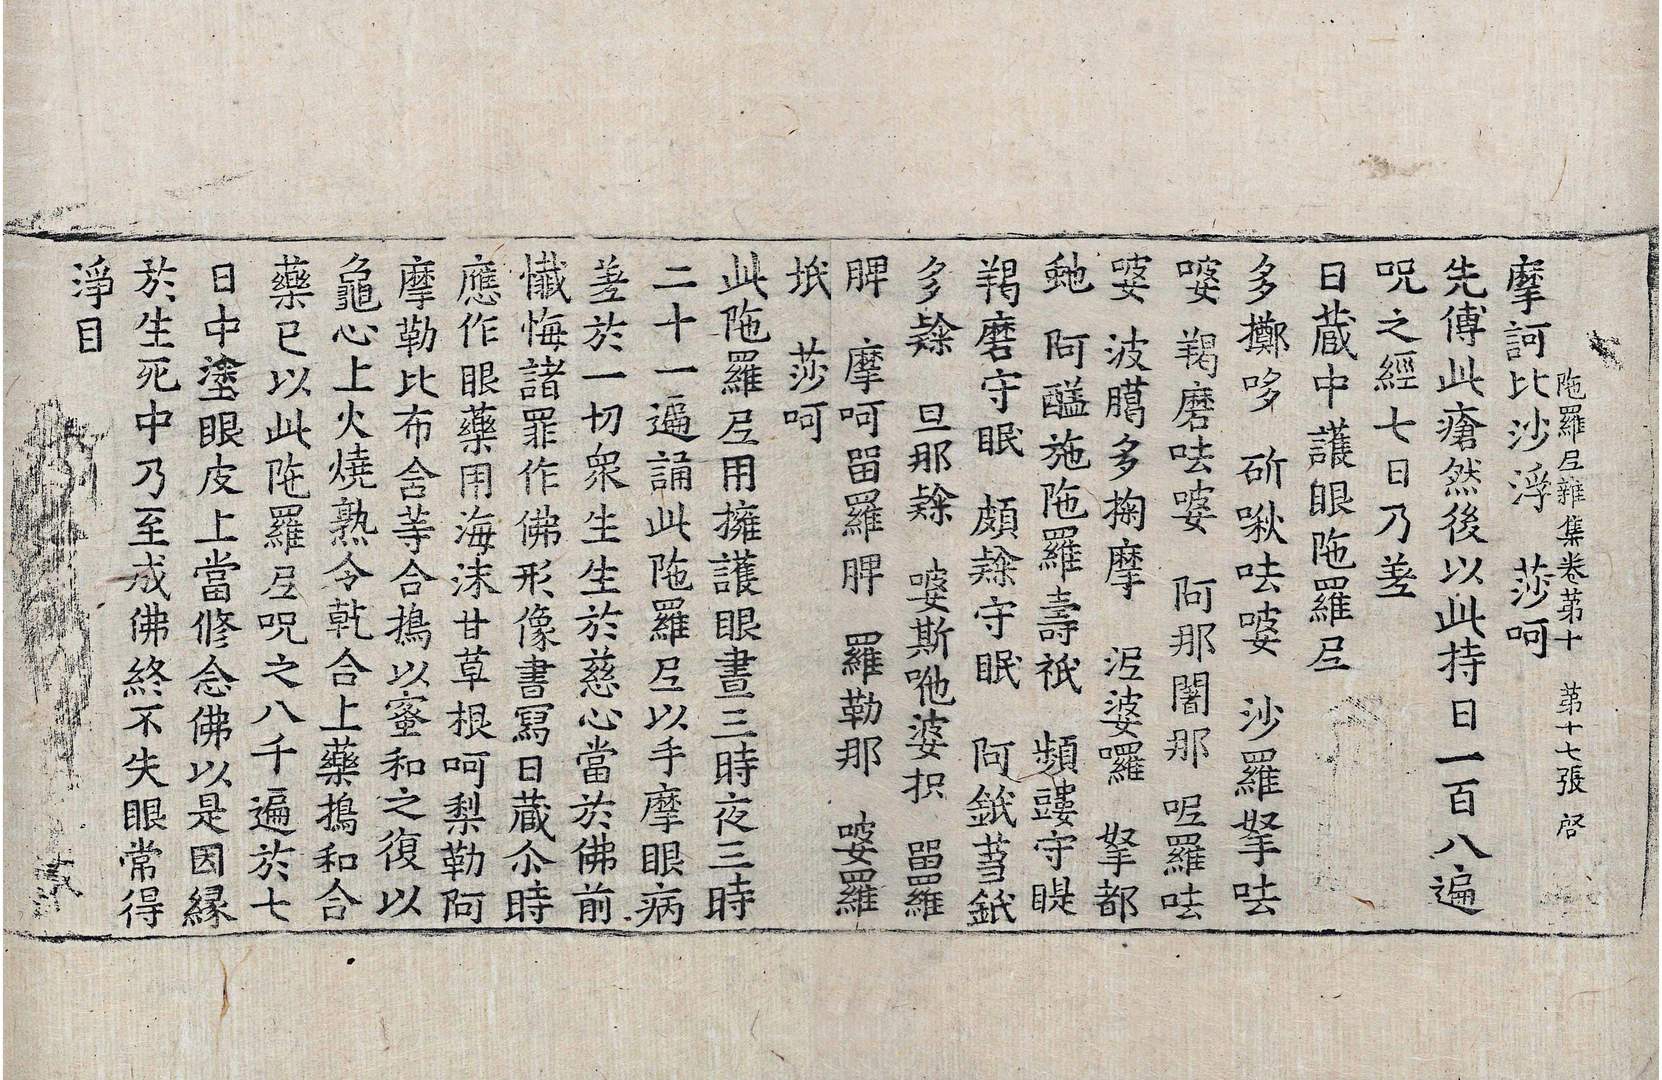 陁羅尼雜集卷苐十 苐十七張 啓
摩訶比沙浮 莎呵
先傅此瘡然後以此持日一百八遍
呪之經七日乃差
日蔵中護眼陁羅尼
多擲哆 斫啾呿婆 沙羅拏呿
婆 羯磨呿婆 阿那闍那 呢羅呿
婆 波臈多掬摩 泥婆囉 拏都
虵 阿醯施陁羅壽祇 頻䕯守睼
羯磨守眠 頗𨽻守眠 阿鈱䓤鈱
多𨽻 旦那𨽻 婆斯咃婆抧 㽞羅
脾 摩呵㽞羅脾 羅勒那 婆羅
坻 莎呵
此陁羅尼用擁護眼晝三時夜三時
二十一遍誦此陁羅尼以手摩眼病
差於一切衆生生於慈心當於佛前
懴悔諸罪作佛形像書寫日蔵尒時
應作眼藥用海沫甘草根呵梨勒阿
摩勒比布舍䓁合擣以蜜和之復以
龜心上火燒熟令乾合上藥擣和合
藥已以此陁羅尼呪之八千遍於七
日中塗眼皮上當修念佛以是因縁
於生死中乃至成佛終不失眼常得
淨目